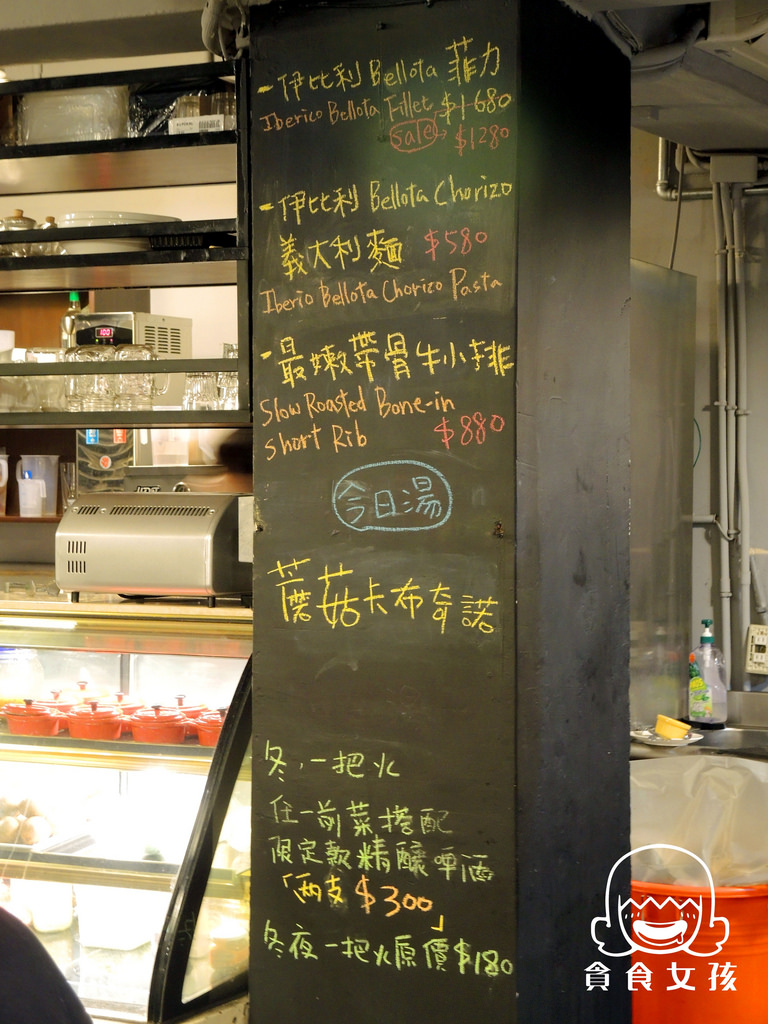 - 伊比利 Bellota 菲力
Iberico Bellota Fillet $1680
sale → $1280
- 伊比利 Bellota Chorizo
義大利麵 $580
Iberio Bellota Chorizo Pasta
- 最嫩帶骨牛小排
Slow Roasted Bone-in
short Rib $880
今日湯
蘑菇卡布奇諾
冬,一把火
任一前菜搭配
限定款精釀啤酒
「兩支 $300」
冬夜一把火原價$180
貪食女孩